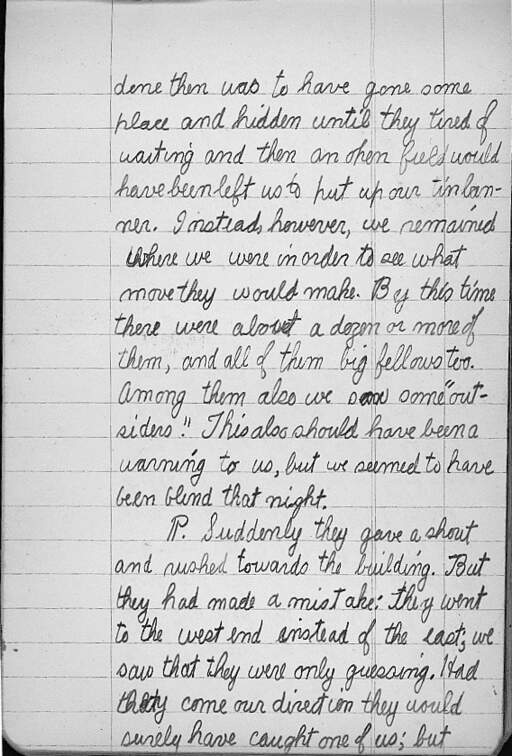 done then was to have gone some
place and hidden until they tired of
waiting and then an open field would
have been left us to put up our tin ban-
ner. Instead, however, we remained
where we were in order to see what
move they would make. By this time
there were about a dozen or more of
them, and all of them big fellows too.
Among them also we saw some "out-
siders". This also should have been a
warning to us, but we seemed to have
been blind that night.
P. Suddenly they gave a shout
and rushed towards the building. But
they had made a mistake: they went
to the west end instead of the east; we
saw that they were only guessing. Had
they come our direction they would
surely have caught one of us; but